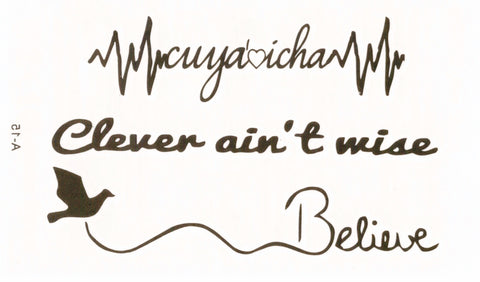 cuya'♡icha
Clever ain't wise
Believe
A-15